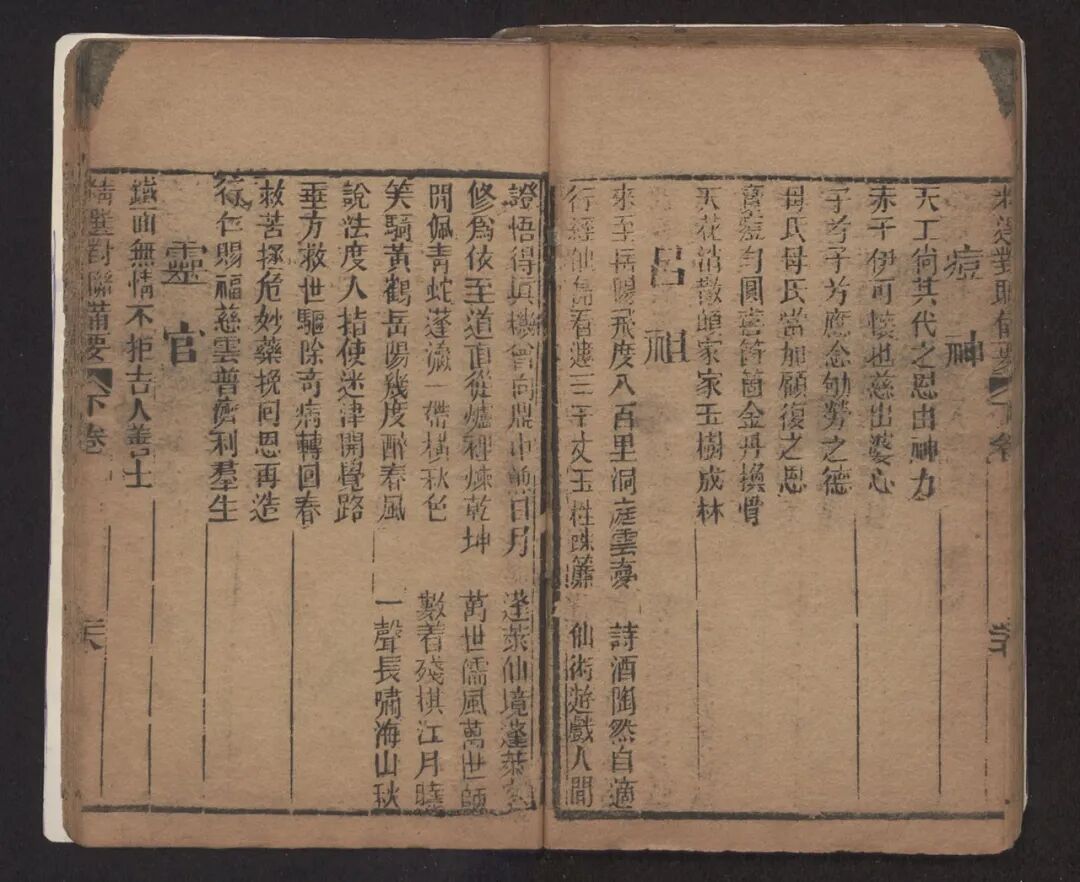 精選對聯備要 下卷
痘神
天工尙其代之恩出神力
赤子伊可懷也慈出婆心
子兮子兮應念劬勞之德
母氏母氏當加顧復之恩
寶靨勻圓喜箇箇金丹換骨
天花消散頌家家玉樹成林
呂祖
來至岳陽飛度八百里洞庭雲夢 詩酒陶然自適
行經仙島看遍三千丈玉柱珠簾 仙術遊戲人間
證悟得眞機曾向鼎中煎日月 蓬萊仙境蓬萊
修爲依至道直從爐裡煉乾坤 萬世儒風萬世師
閒佩靑蛇蓬瀛一帶橫秋色 數着殘棋江月曉
笑騎黃鶴岳陽幾度醉春風 一聲長嘯海山秋
說法度人指使迷津開覺路
垂方救世驅除奇病轉回春
救苦拯危妙藥挽回恩再造
行仁賜福慈雲普濟利羣生
靈官
鐵面無情不拒吉人善士
精選對聯備要 下卷 六